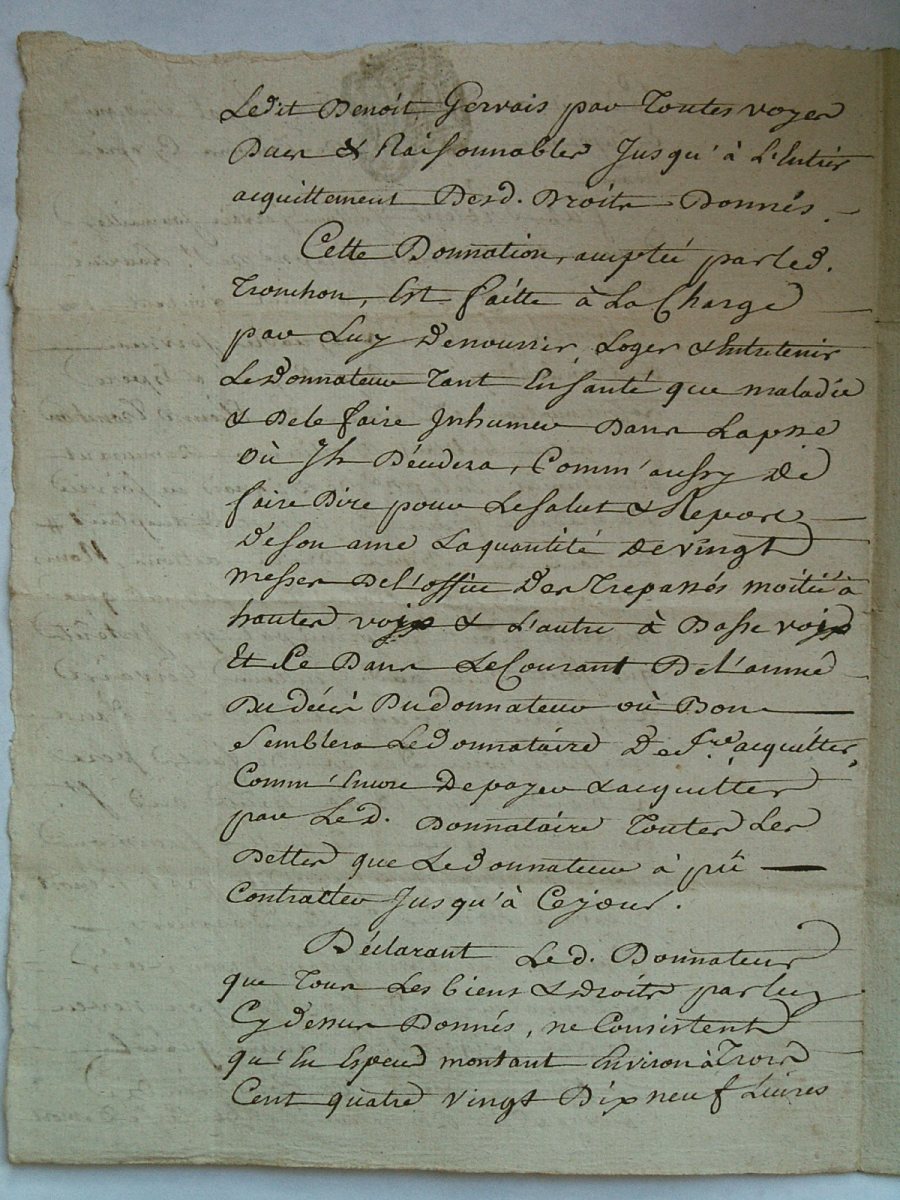 Ledit Benoit Gervais par Toutes voyes
Dues & Raisonnables Jusqu'à L'Entier
acquittement Desd. Droits Donnés.
Cette Donnation, acceptée par led.
Tronchon, Est faitte à La Charge
par Luy De nourrir, Loger & Entretenir
Le Donnateur Tant En santé que maladie
& De le faire Inhumer Dans La psse
où Il Décedera, Comm'aussy De
faire Dire pour Le salut & Repos
De son ame La quantité De vingt
messes De l'office Des Trepassés moitié à
hautes voix & L'autre à Basse voix
Et Ce Dans Le Courant De L'anné
Du décès Du Donnateur où Bon
semblera Le Donnataire De faire acquitter,
Comm'Encore De payer & acquitter
par Led. Donnataire Toutes Les
Dettes que Le Donnateur à pû
Contracter Jusqu'à Ce jour.
Déclarant Led. Donnateur
que Tous Les biens & Droits par luy
Cy dessus Donnés, ne Consistent
qu'En Espece montant Environ à Trois
Cent quatre vingt Dix neuf Livres